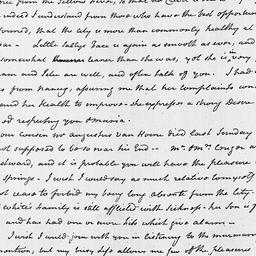 free from the Yellow Fever, so that no
indeed I understand from those who have the best opportun
formed, that the city is more than commonly healthy at
ear - Little Sally's Face is again as smooth as ever, and
somewhat leaner than she was, yet she is very
and are well, and often talk of you. I had
from Nancy, assuring me that her complaints were
and her health to improve - she expresses a strong Desire
of respecting you & maria.
our cousin Mr Augustus Van Horne died last Sunday
not supposed to be so near his End -
edward, and it is probable you will have the pleasure
Springs - I wish I could say as much relative to myself
not cease to forbid my being long absent from the city.
White's Family is still afflicted with sickness - her son is
and has had one or more fits which give alarm -
I wish I could join with you in listening to the murmurin
mountain, but my busy life allows me few of the pleasures